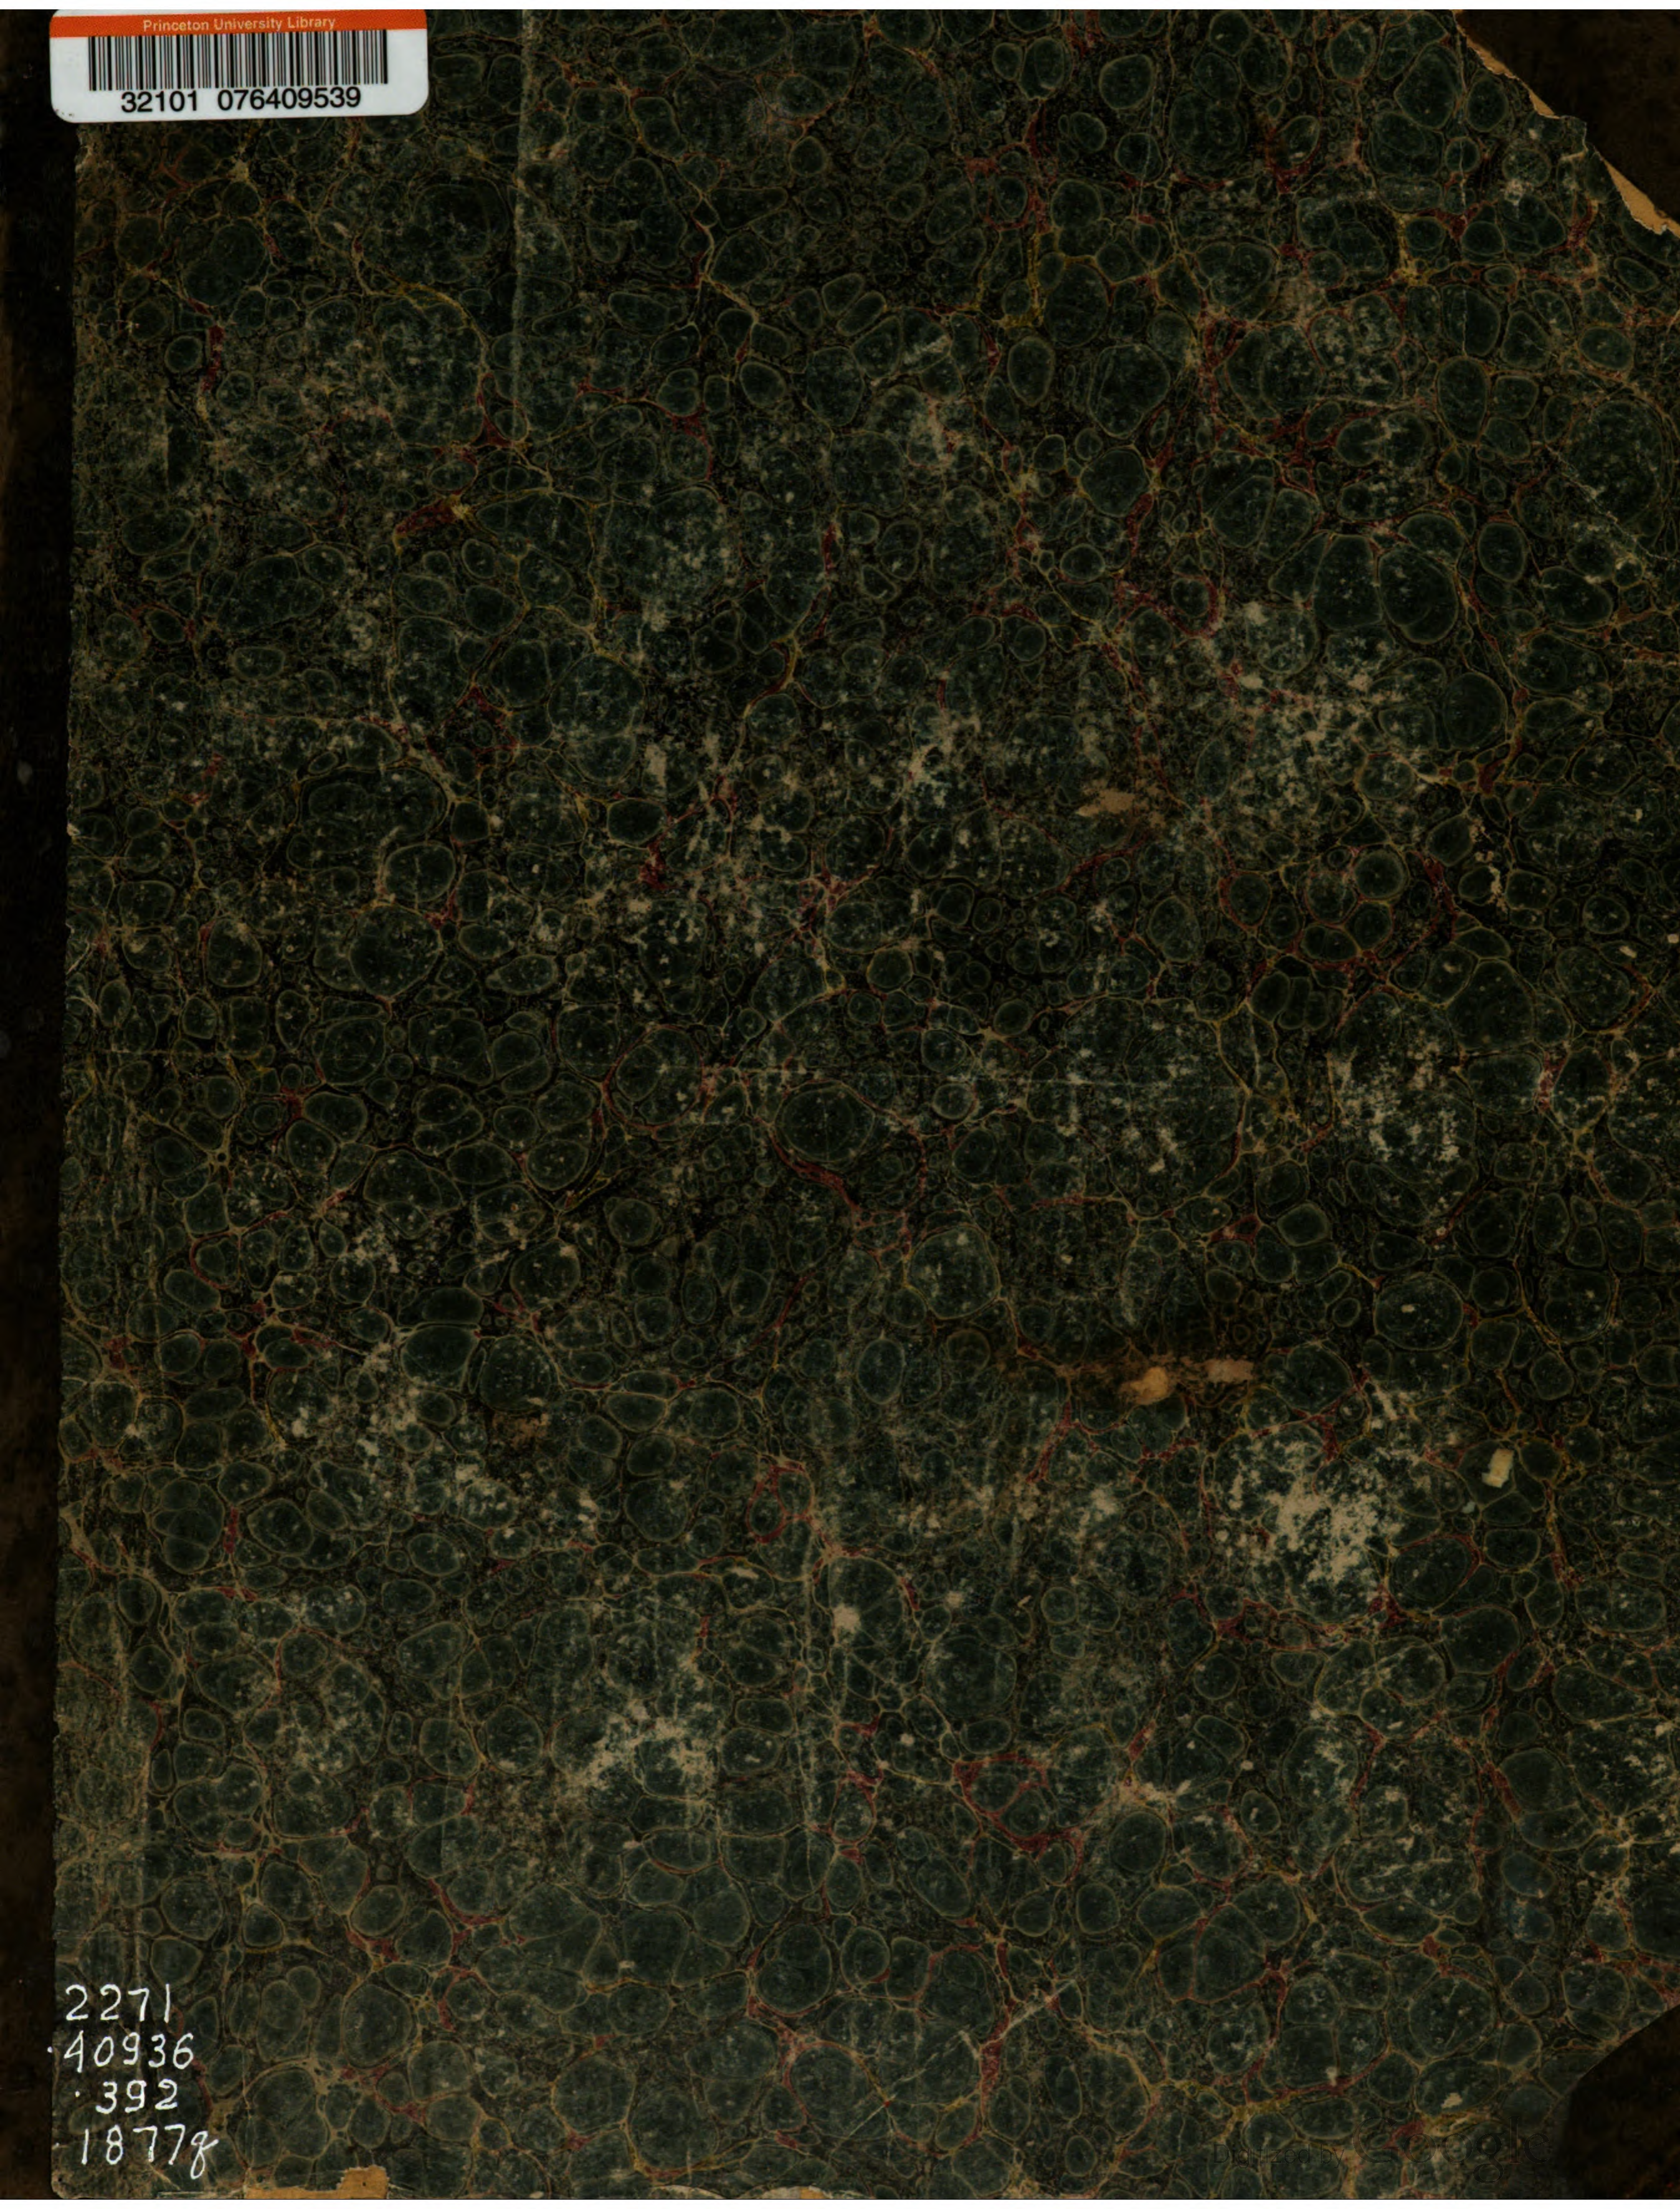 Princeton University Library
32101 076409539
2271
.40936
.392
1877q